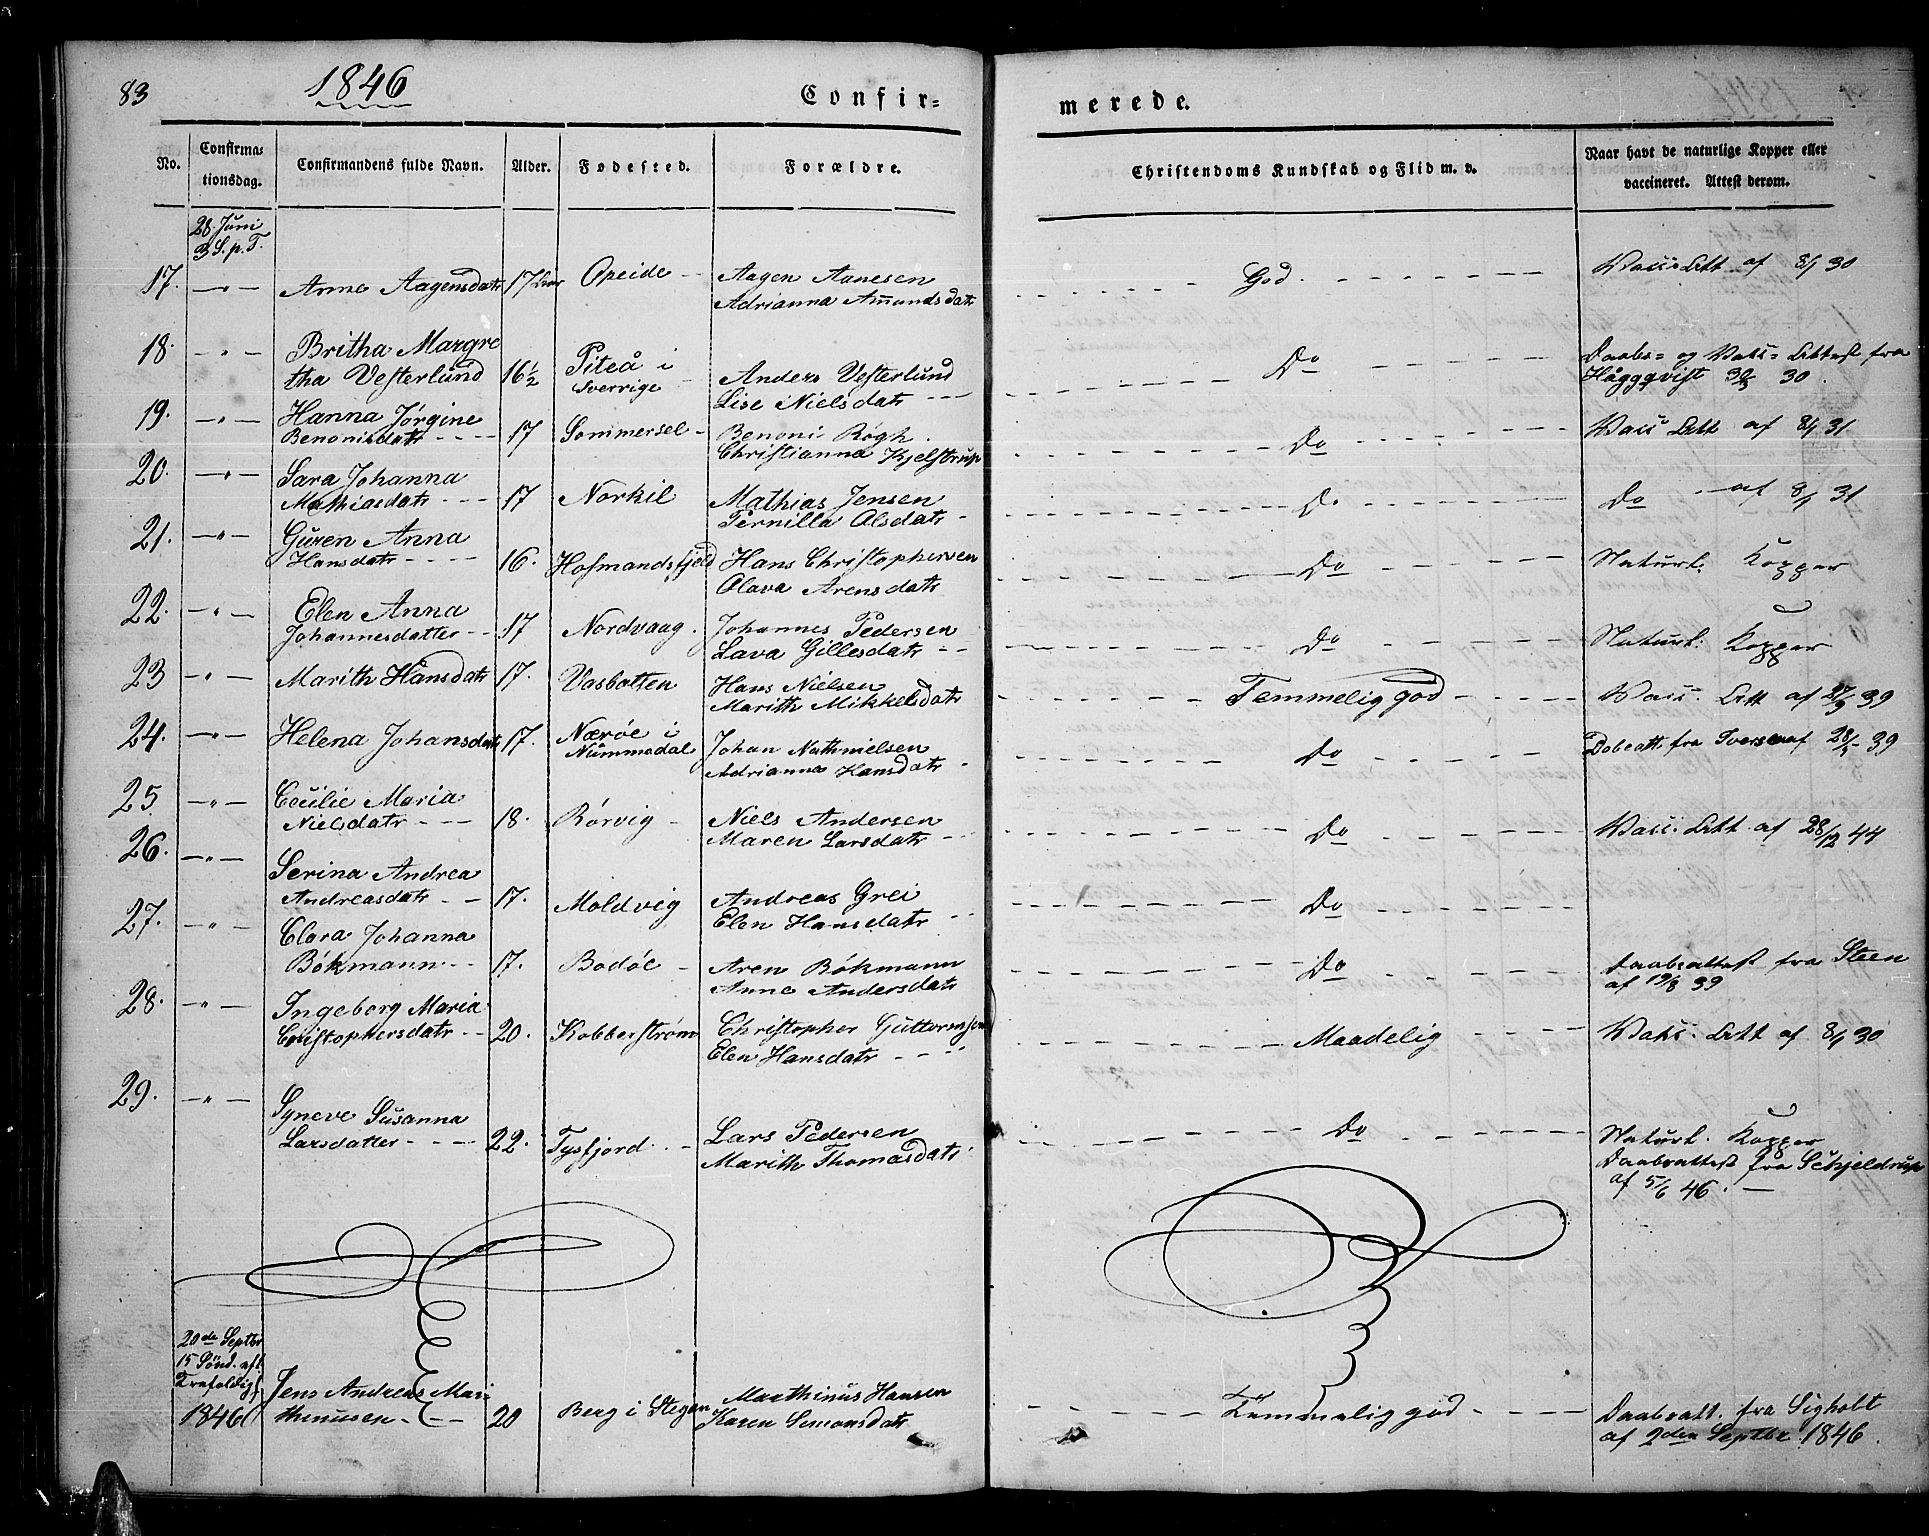 83
1846
Confir=
merede.
No.
Confirma=
tionsdag.
Confirmandens fulde Navn.
Alder.
Fødested.
Forældre.
Christendoms Kundskab og Flid m. v.
Naar havt de naturlige Kopper eller
vaccineret. Attest derom.
28 Juni
3 S. p. T.
17. —„— Anne Aagensdatr 17 Opeide — Aagen Aanesen God. Vacc: Att. af 8/1 30
Adrianna Amundsdatr
18. —„— Britha Margre
tha Vesterlund 16½ Piteå i Anders Vesterlund Do Daabs= og Vacc= Attest fra
Sverrige — Lise Nielsdatr Häggqvist 30.
19. —„— Hanna Jørgine
Benonisdatr 17 Sommersel — Benoni Røgh. Do Vacc Att af 8/1 31
Christianna Kjelstrup
20. —„— Sara Johanna
Mathiasdatr 17 Norkil Mathias Jensen Do Do af 8/1 31
Pernilla Olsdatr
21. —„— Guren Anna
Hansdatr 16. Hofmandsfjeld Hans Christophersen Do Naturl. Kopper
Olava Arensdatr
22. —„— Elen Anna
Johannesdatter 17 Nordvaag. Johannes Pedersen Do Naturl. Kopper
Lava Gillesdatr
23 —„— Marith Hansdatr 17. Vasbotten Hans Nielsen Temmelig god Vacc. Att af 27/9 39
Marith Mikkelsdatr
24. —„— Helena Johansdatr 17. Nærøe i Johan Nathnielsen Do Dobeatt. fra Iversen af 28/ 39
Nummedal Adrianna Hansdatr
25. —„— Cecilie Maria
Nielsdatr 18. Rørvig — Niels Andersen Do Vacc. Att. af 28/12 44
Maren Larsdatr
26. —„— Serina Andrea
Andreasdatr 17. Moldvig Andreas Grei Do
Elen Hansdatr
27. —„— Clara Johanna
Bökmann 17. Bodöe — Aren Bökmann Do Daabsattest fra Steen
Anne Andersdatr af 19/8 39
28. —„— Ingeborg Maria
Cristophersdatr 20. Kobberstrøm Christopher Guttormsen Maadelig Vaks. Att af 8/1 30
Elen Hansdatr
29. —„— Syneve Susanna
Larsdatter 22. Tysfjord. — Lars Pedersen Do Naturl. Kopper
Marith Thomasdatr Daabsattest fra Schjeldrup
af 5/6 46. —
20de Septbr
15 Sönd. eft
Trefoldigh
1846 Jens Andreas Mar
thinussen 20 Berg i Stegen Marthinus Hansen Temmelig god Daabsatt. fra Sigholt
Karen Simonsdatr af 2den Septbr 1846.